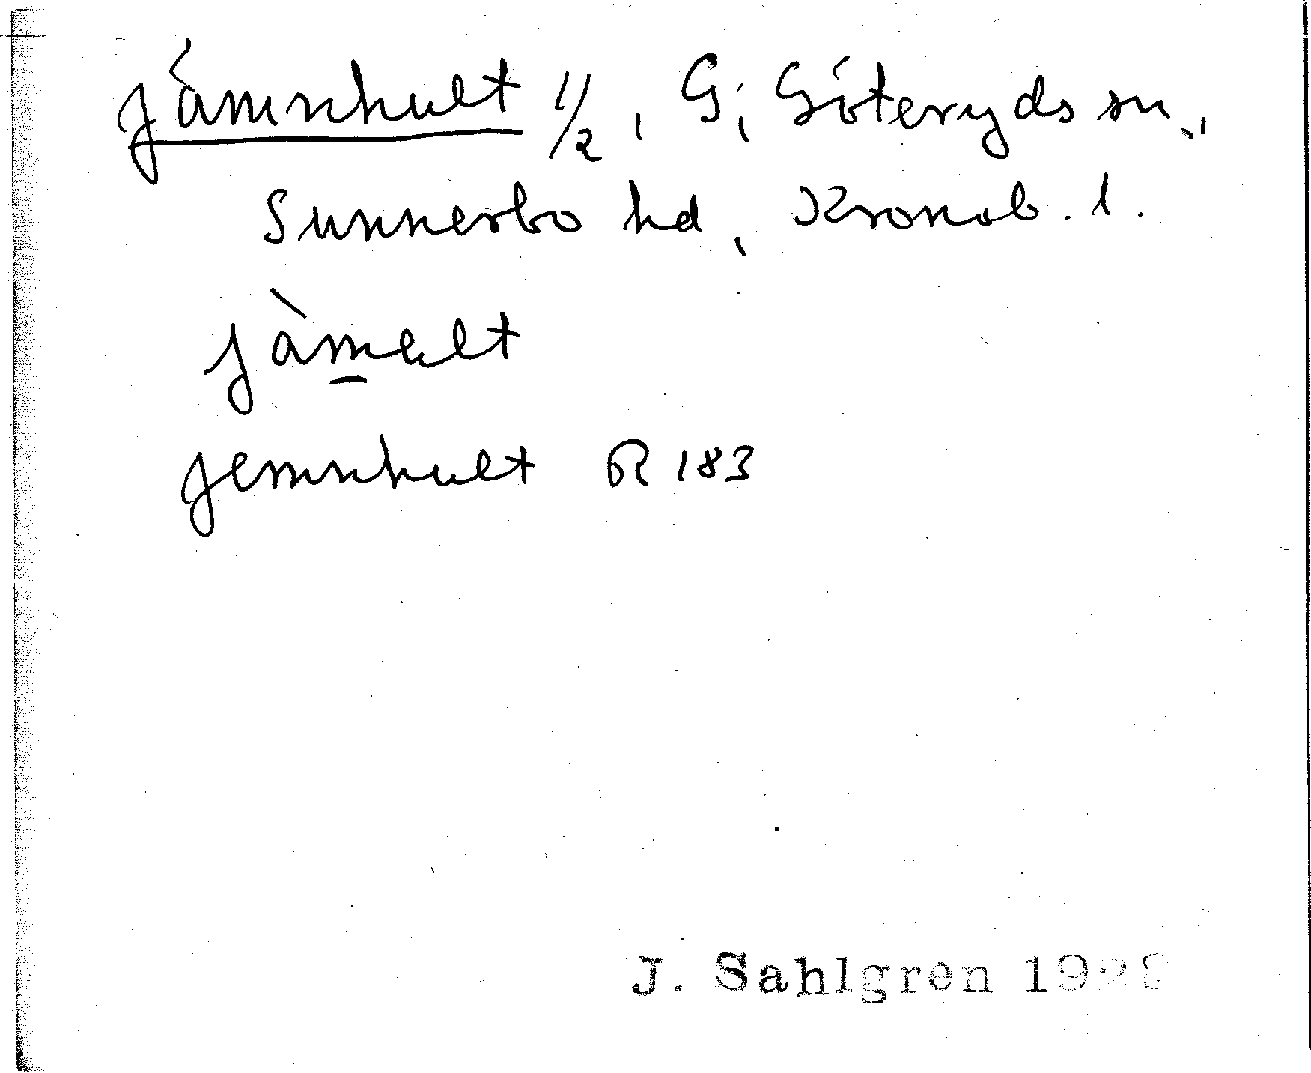 Jämshult 1/2, G, Göteryds sn.,
Sunnerbo hd, Kronob. l.
jàmelt
Jemshult R 183
J. Sahlgren 1928